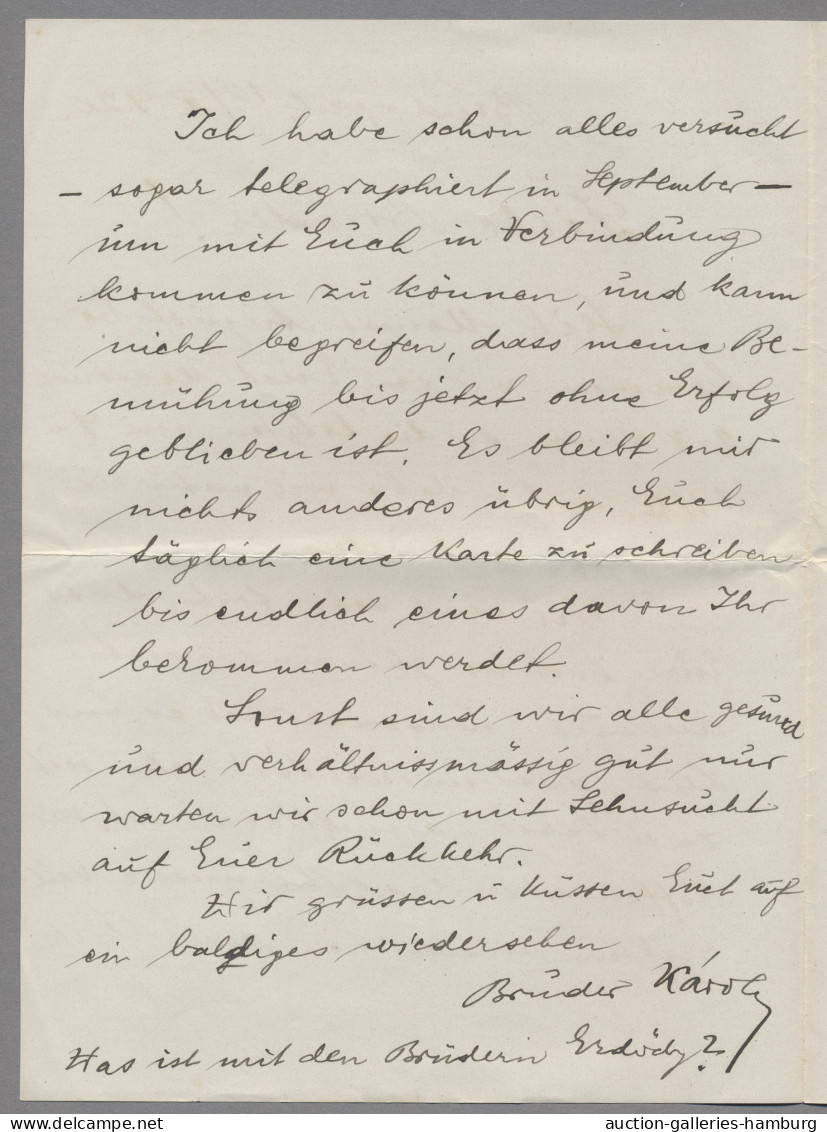 Ich habe schon alles versucht
– sogar telegraphiert in September –
um mit Euch in Verbindung
kommen zu können, und kann
nicht begreifen, dass meine Be-
mühung bis jetzt ohne Erfolg
geblieben ist. Es bleibt mir
nichts anderes übrig, Euch
täglich eine Karte zu schreiben
bis endlich eines davon Ihr
bekommen werdet.
Sonst sind wir alle gesund
und verhältnissmässig gut nur
warten wir schon mit Sehnsucht
auf Euer Rückkehr.
Wir grüssen u küssen Euch auf
ein baldiges wiedersehen
Bruder Károly
Was ist mit den Brüdern Erdödy?
auction-galleries-hamburg